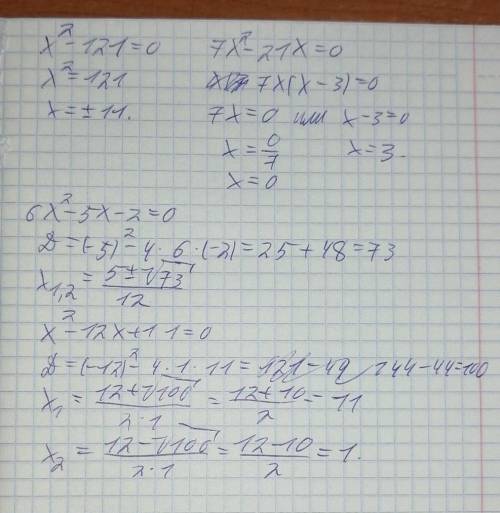 x² - 121 = 0
x² = 121
x = ± 11.
7x² - 21x = 0
7x(x - 3) = 0
7x = 0 или x - 3 = 0
x = 0/7 x = 3.
x = 0
6x² - 5x - 2 = 0
D = (-5)² - 4 · 6 · (-2) = 25 + 48 = 73
x₁,₂ = (5 ± √73)/12
x² - 12x + 11 = 0
D = (-12)² - 4 · 1 · 11 = 144 - 44 = 100
x₁ = (12 + √100)/(2·1) = (12 + 10)/2 = 11
x₂ = (12 - √100)/(2·1) = (12 - 10)/2 = 1.